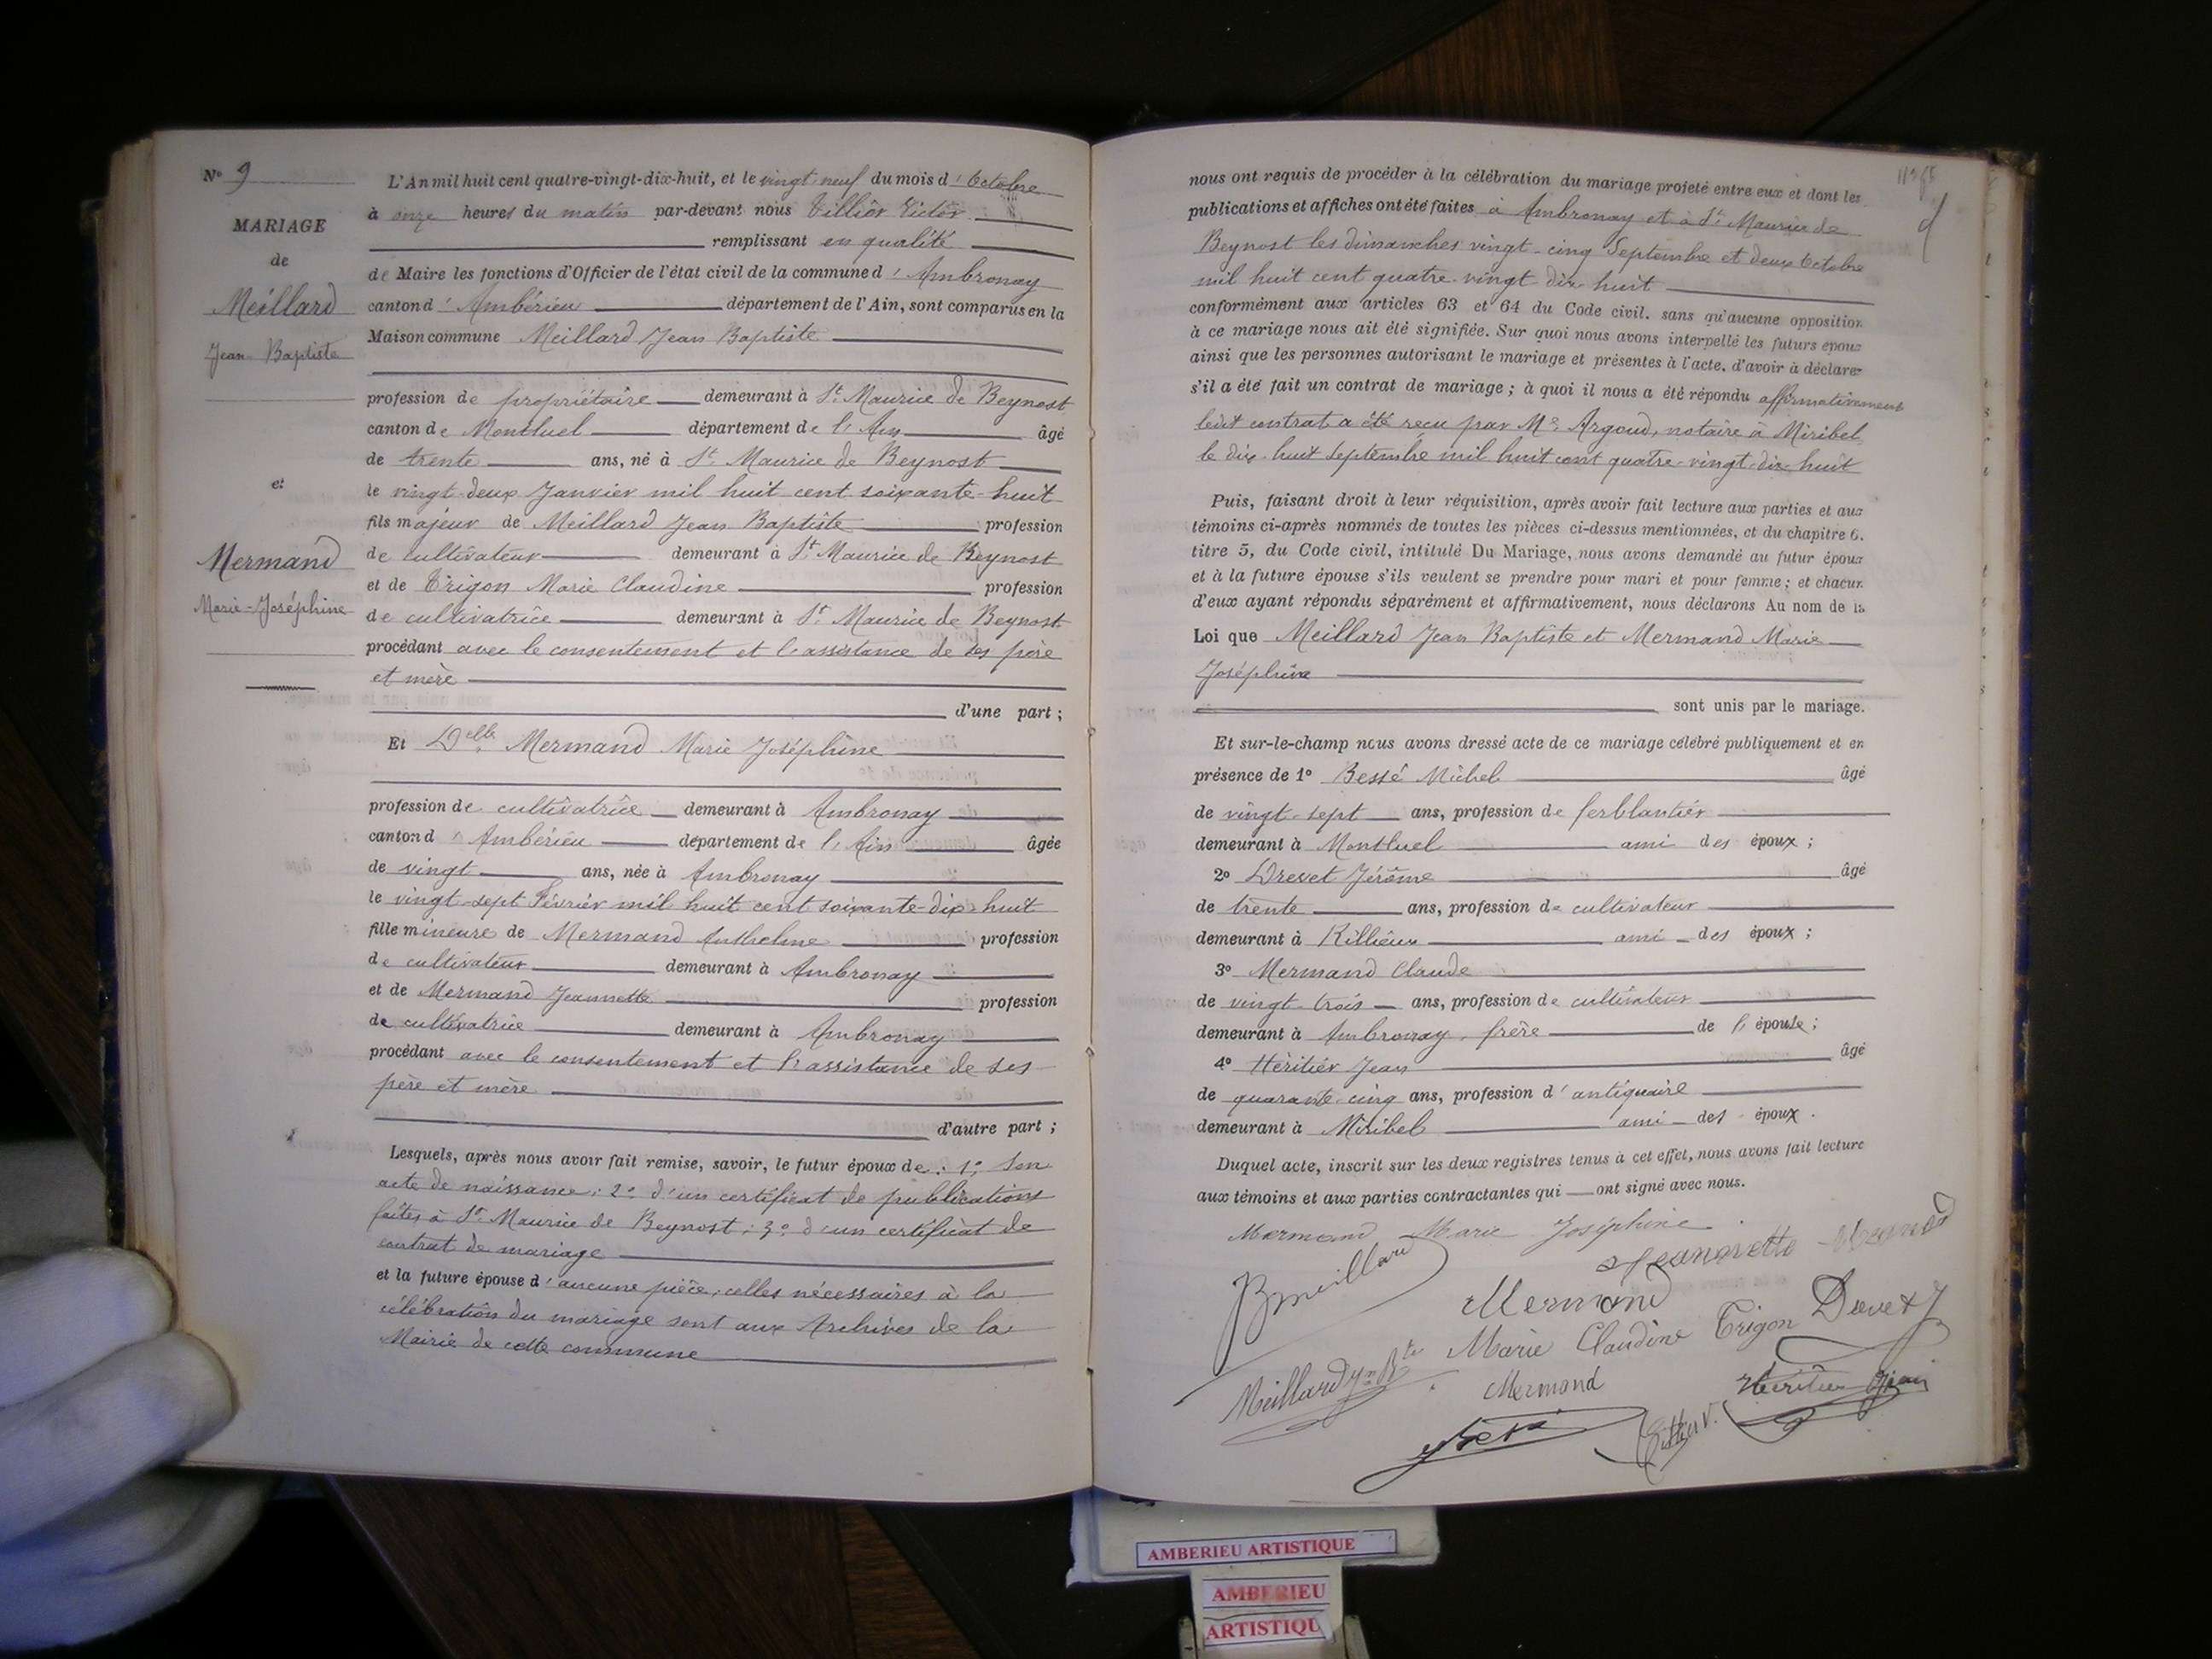 Nº 9
MARIAGE
de
Meillard
Jean Baptiste
et
Mermand
Marie-Joséphine
L'An mil huit cent quatre-vingt-dix-huit, et le vingt neuf du mois d'Octobre
à onze heures du matin par-devant nous Tillier Victor
remplissant en qualité
de Maire les fonctions d'Officier de l'état civil de la commune d'Ambronay
canton d'Ambérieu département de l'Ain, sont comparus en la
Maison commune Meillard Jean Baptiste
profession de propriétaire demeurant à St Maurice de Beynost
canton de Montluel département de l'Ain âgé
de trente ans, né à St Maurice de Beynost
le vingt-deux Janvier mil huit cent soixante-huit
fils majeur de Meillard Jean Baptiste profession
de cultivateur demeurant à St Maurice de Beynost
et de Trigon Marie Claudine profession
de cultivatrice demeurant à St Maurice de Beynost
procédant avec le consentement et l'assistance de ses père
et mère
d'une part ;
Et Delle Mermand Marie Joséphine
profession de cultivatrice demeurant à Ambronay
canton d'Ambérieu département de l'Ain âgée
de vingt ans, née à Ambronay
le vingt-sept Février mil huit cent soixante-dix-huit
fille mineure de Mermand Anthelme profession
de cultivateur demeurant à Ambronay
et de Mermand Jeannette profession
de cultivatrice demeurant à Ambronay
procédant avec le consentement et l'assistance de ses
père et mère
d'autre part ;
Lesquels, après nous avoir fait remise, savoir, le futur époux de : 1º Son
acte de naissance ; 2º d'un certificat de publications
faites à St Maurice de Beynost ; 3º d'un certificat de
contrat de mariage
et la future épouse d'aucune pièce, celles nécessaires à la
célébration du mariage sont aux Archives de la
Mairie de cette commune
nous ont requis de procéder à la célébration du mariage projeté entre eux et dont les
publications et affiches ont été faites à Ambronay et à St Maurice de
Beynost les dimanches vingt-cinq Septembre et deux Octobre
mil huit cent quatre-vingt dix huit
conformément aux articles 63 et 64 du Code civil. sans qu'aucune opposition
à ce mariage nous ait été signifiée. Sur quoi nous avons interpellé les futurs époux
ainsi que les personnes autorisant le mariage et présentes à l'acte, d'avoir à déclarer
s'il a été fait un contrat de mariage ; à quoi il nous a été répondu affirmativement
ledit contrat a été reçu par Me Argoud, notaire à Miribel
le dix-huit Septembre mil huit cent quatre-vingt-dix-huit
Puis, faisant droit à leur réquisition, après avoir fait lecture aux parties et aux
témoins ci-après nommés de toutes les pièces ci-dessus mentionnées, et du chapitre 6.
titre 5, du Code civil, intitulé Du Mariage, nous avons demandé au futur époux
et à la future épouse s'ils veulent se prendre pour mari et pour femme ; et chacun
d'eux ayant répondu séparément et affirmativement, nous déclarons Au nom de la
Loi que Meillard Jean Baptiste et Mermand Marie
Joséphine
sont unis par le mariage.
Et sur-le-champ nous avons dressé acte de ce mariage célébré publiquement et en
présence de 1º Bessé Michel âgé
de vingt-sept ans, profession de ferblantier
demeurant à Montluel ami des époux ;
2º Drevet Jérôme âgé
de trente ans, profession de cultivateur
demeurant à Rillieux ami des époux ;
3º Mermand Claude
de vingt-trois ans, profession de cultivateur
demeurant à Ambronay, frère de l'épouse ;
4º Héritier Jean âgé
de quarante-cinq ans, profession d'antiquaire
demeurant à Miribel ami des époux.
Duquel acte, inscrit sur les deux registres tenus à cet effet, nous avons fait lecture
aux témoins et aux parties contractantes qui ont signé avec nous.
Mermand Marie Joséphine
JBmeillard
Jeannette Mermand
Mermand
Marie Claudine Trigon
Drevet J
Meillard Jn Bte
Mermand
Héritier Jean
Tillier V.
AMBERIEU ARTISTIQUE
AMBERIEU
ARTISTIQU